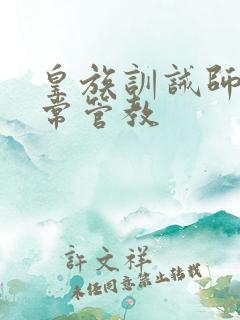 皇族訓誡師
常管教
許文祥
未經同意禁止轉載